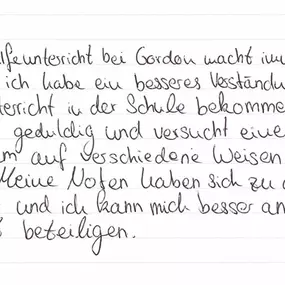 lfeunterricht bei Gordon macht im
ich habe ein besseres Verständn
terricht in der Schule bekomme
geduldig und versucht eine
m auf verschiedene Weisen
Meine Noten haben sich zu
und ich kann mich besser an
beteiligen.